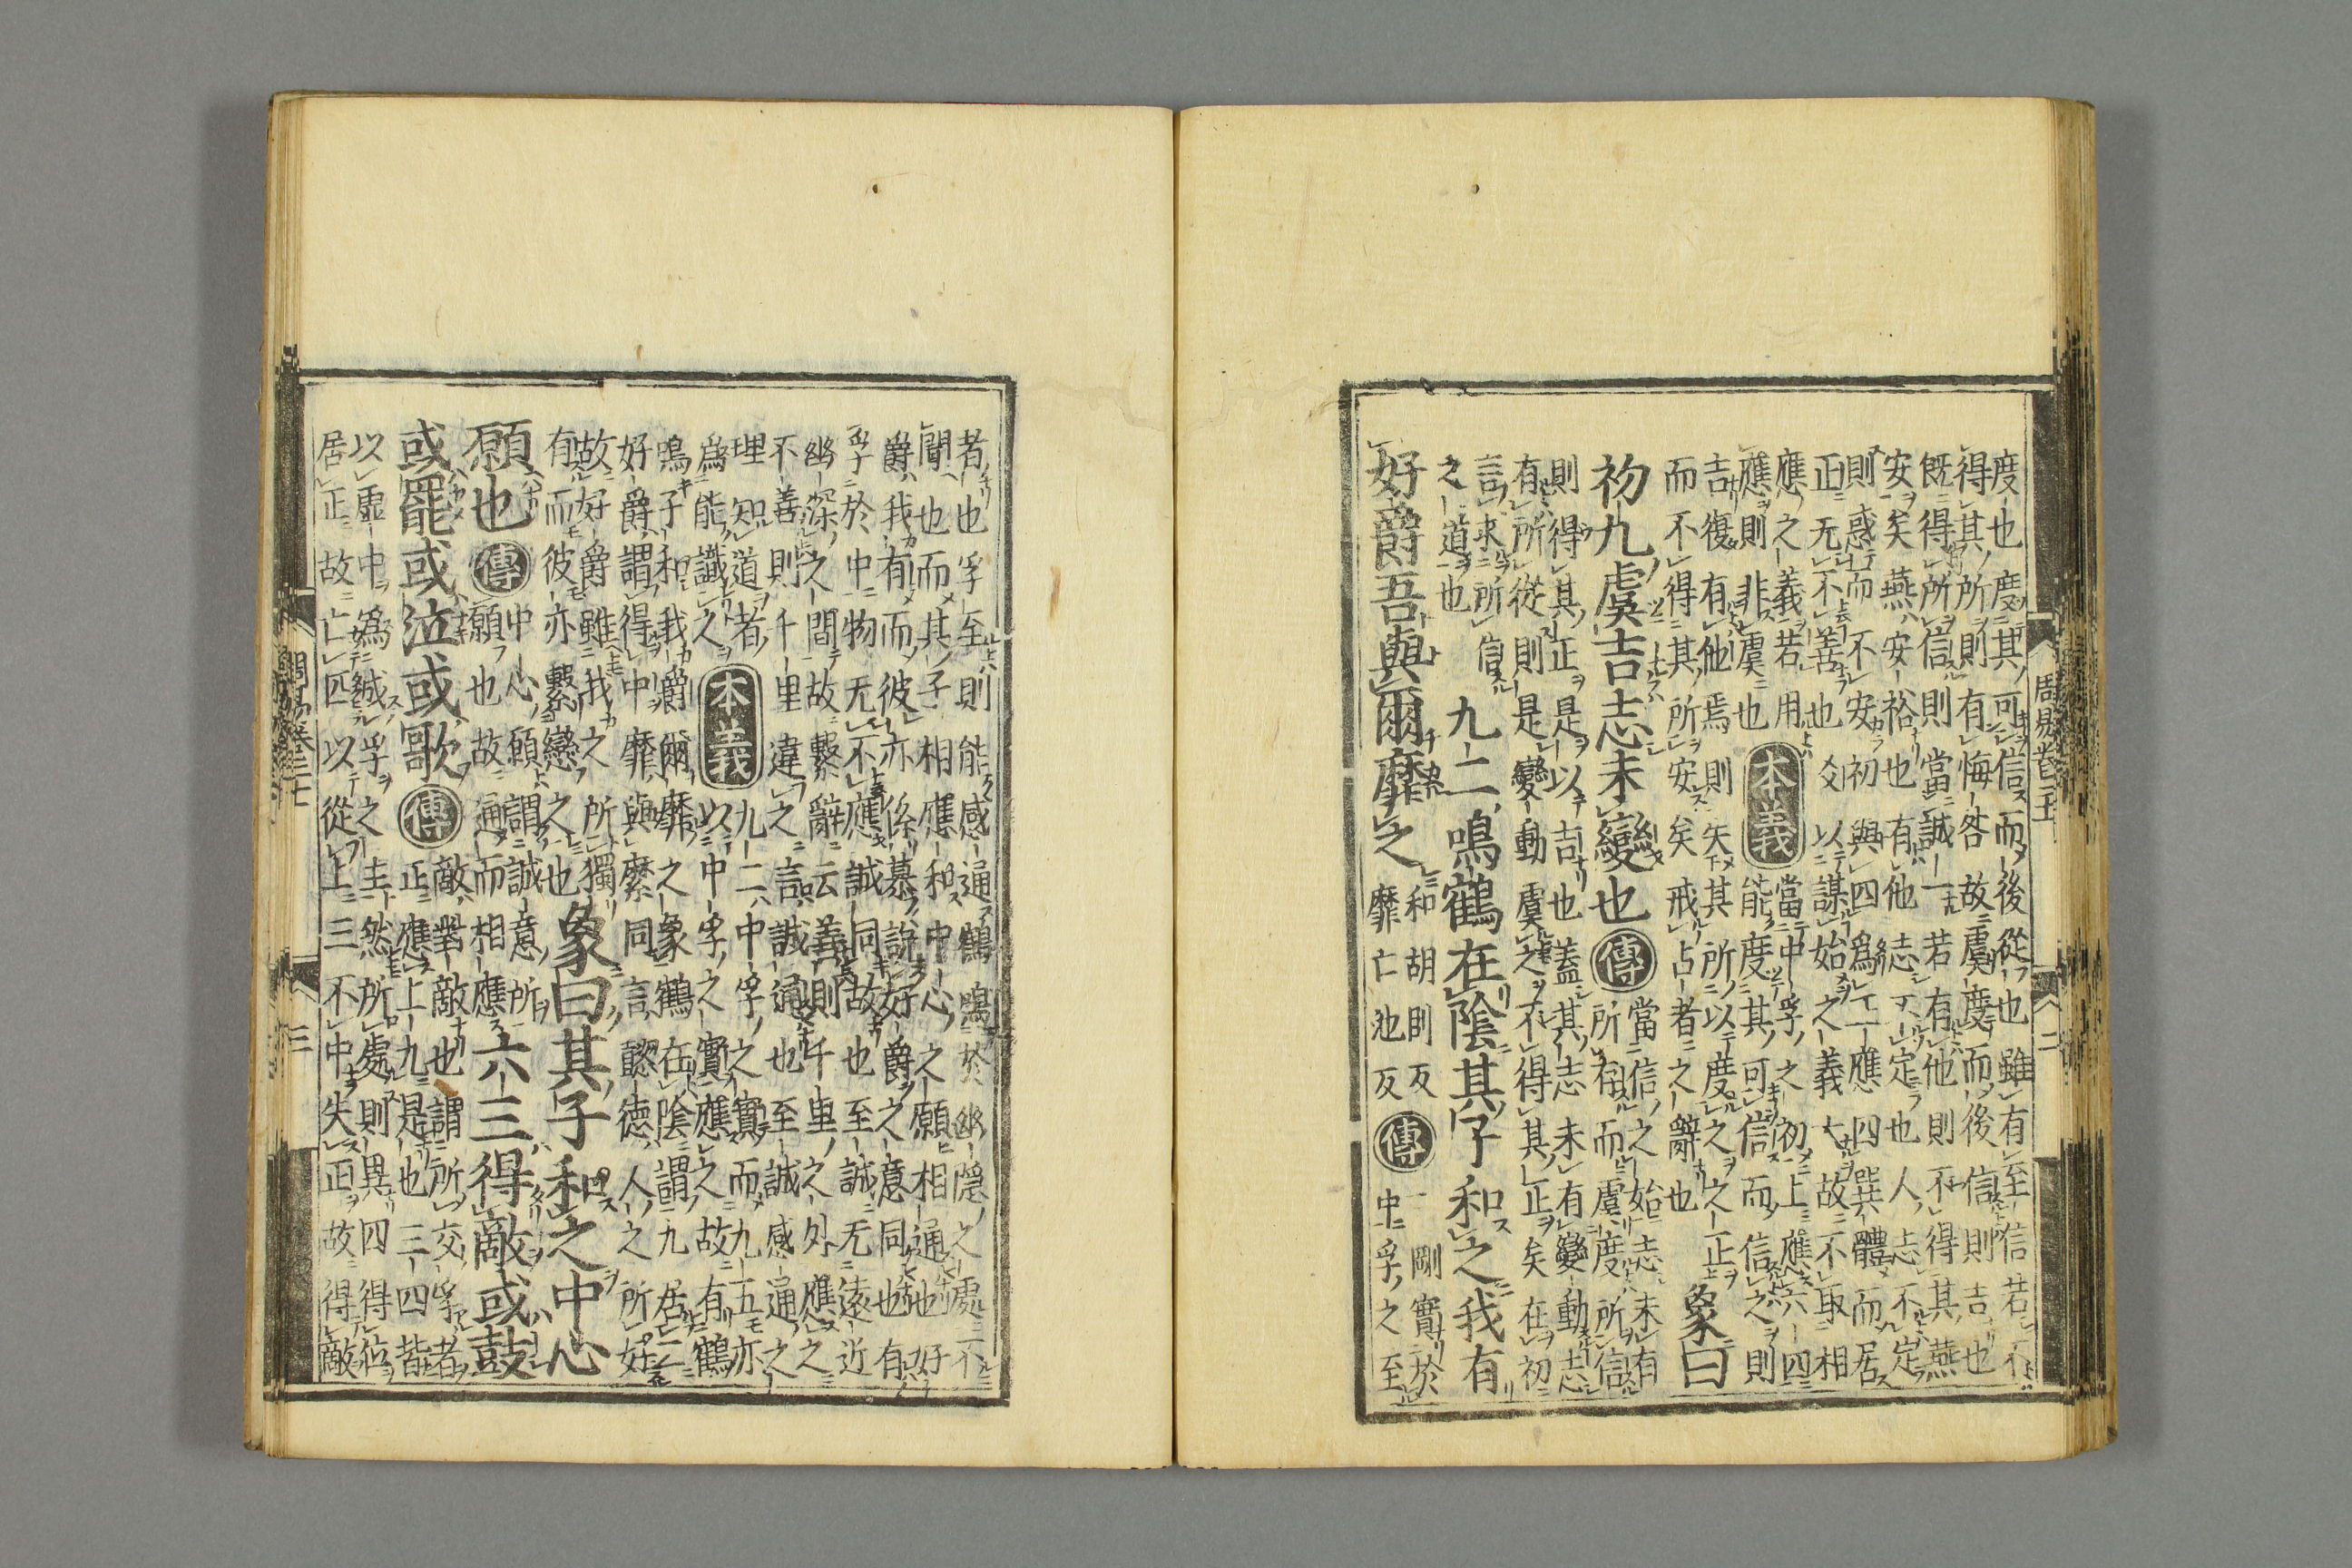 度也度其可信而後從也雖有至信若不
得其所則有悔咎故虞度而後信則吉也
既得所信則當誠一若有他則不得其燕
安矣燕安裕也有他志不定也人志不定
則惑而不安初與四爲正應四巽體而居
正无不善也爻以謀始之義大故不取相
應之義若用
應則非虞也
本義
當中孚之初上應六四
能度其可信而信之則
吉復有他焉則失其所以度之之正
而不得其所安矣戒占者之辭也
象曰
初九虞吉志未變也傳
當信之始志未有
所存而虞度所信
則得其正是以吉也蓋其志未有變動志
有所從則是變動虞之不得其正矣在初
言求所信
之道也
九二鳴鶴在陰其子和之我有
好爵吾與爾靡之
和胡則反
靡亡池反
傳
剛實於
中孚之至
者也孚至則能感通鶴鳴於幽隱之處不
聞也而其子相應和中心之願相通也好
爵我有而彼亦係慕說好爵之意同也有
孚於中物无不應誠同故也至誠无遠近
幽深之間故繫辭云善則千里之外應之
不善則千里違之言誠通也至誠感通之
理知道者
爲能識之
本義
九二中孚之實而九五亦
以中孚之實應之故有鶴
鳴子和我爵爾靡之象鶴在陰謂九居二
好爵謂得中靡與縻同言懿德人之所好
故好爵雖我之所獨
有而彼亦繫戀之也
象曰其子和之中心
願也傳
中心願謂誠意所
願也故通而相應
六三得敵或鼓
或罷或泣或歌傳
敵對敵也謂所交孚者
正應上九是也三四皆
以虛中爲成孚之主然所處則異四得位
居正故亡匹以從上三不中失正故得敵
三